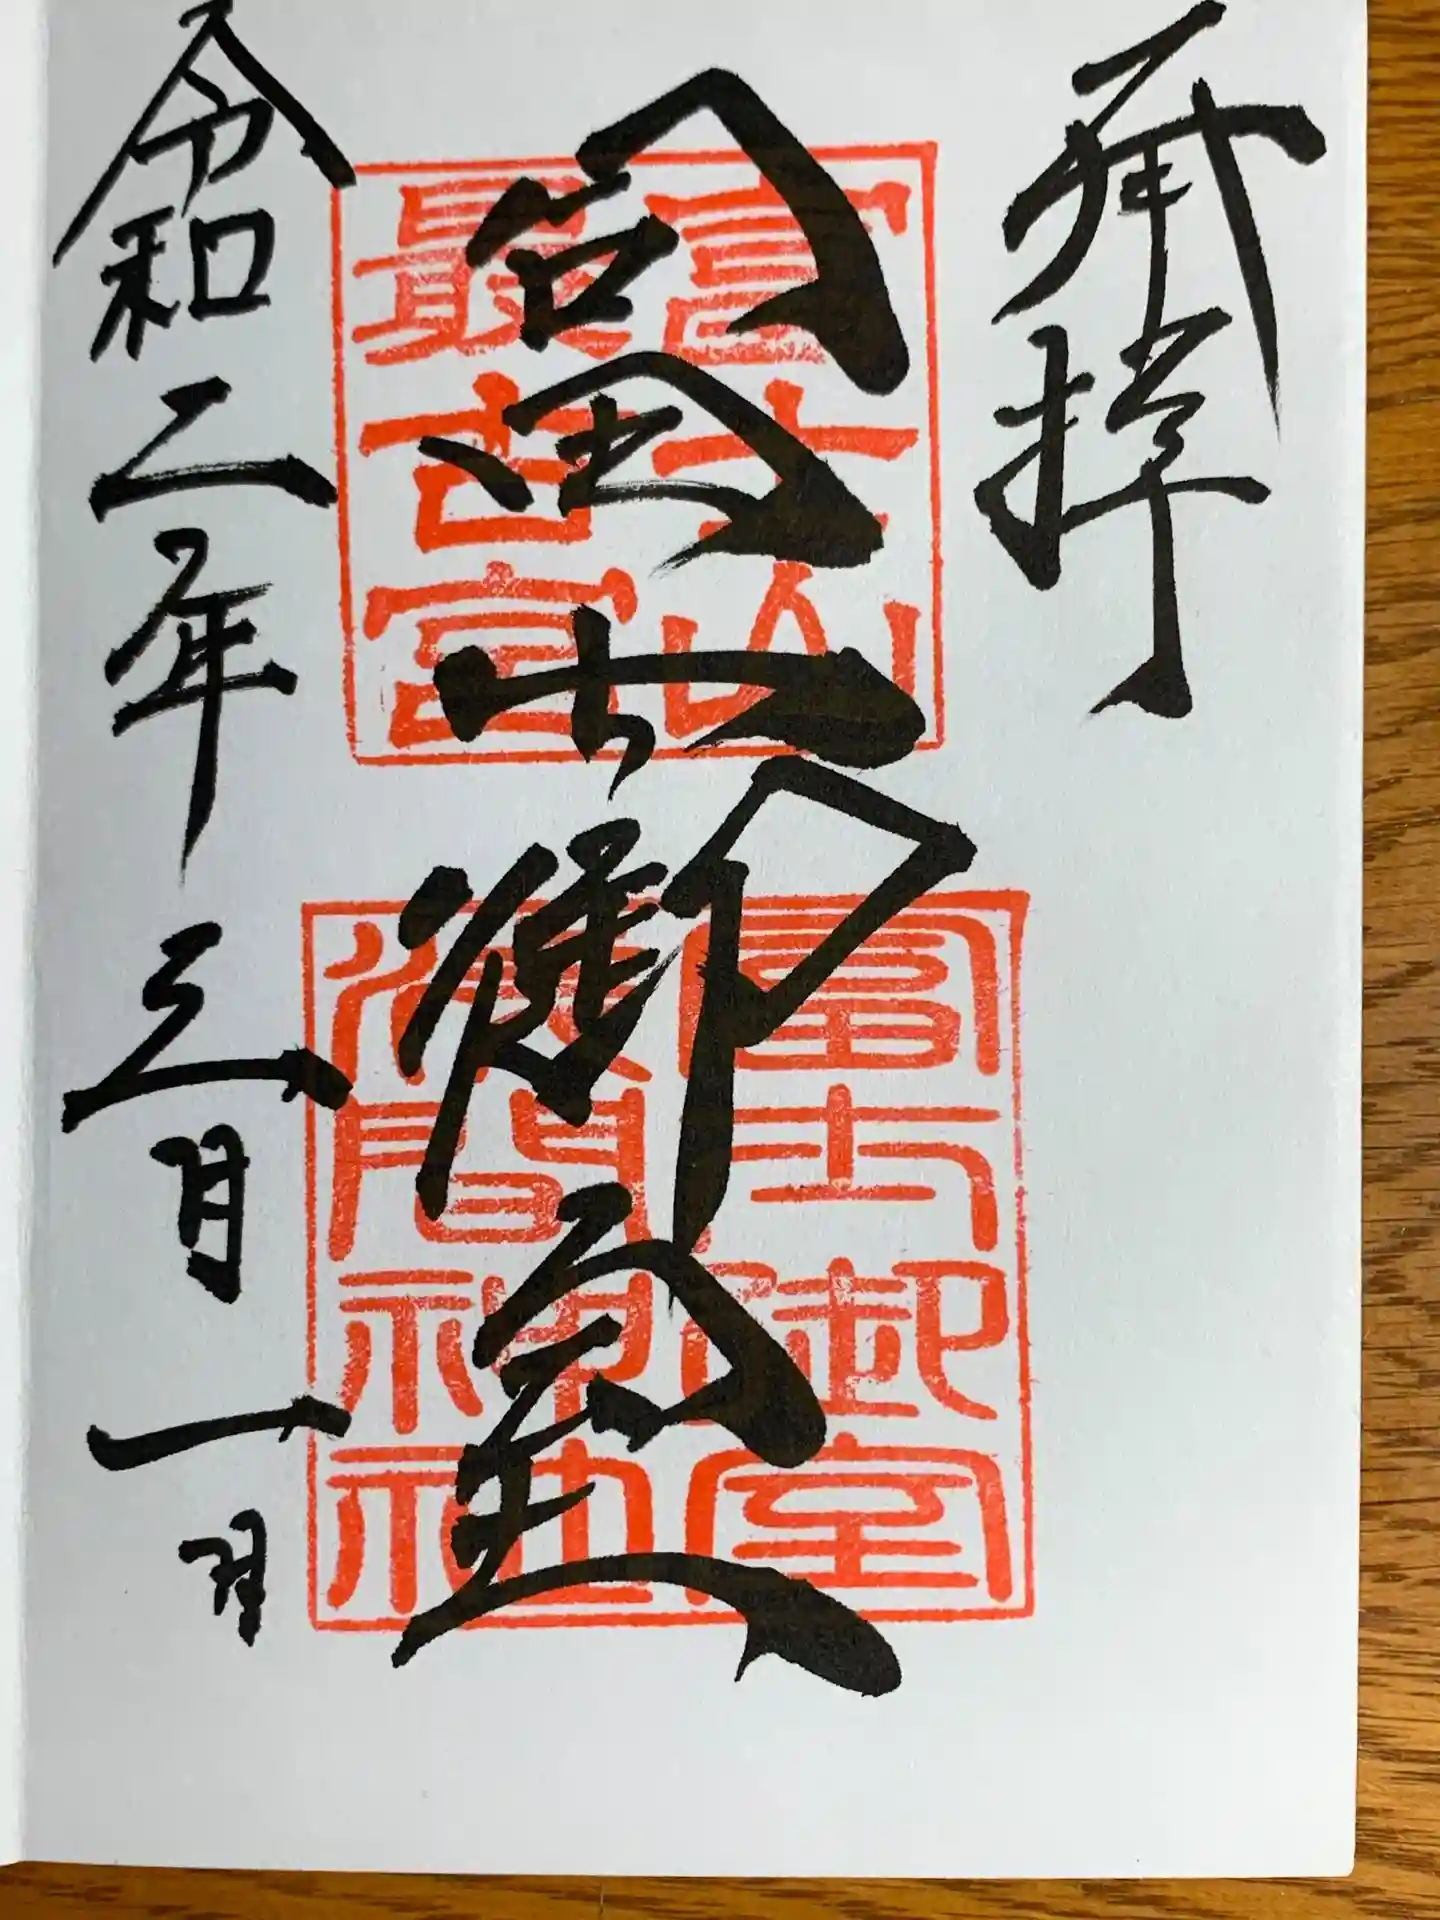 奉拝
冨士御室
富士山
最古宮
冨士御室
淺間神社
令和二年三月一日